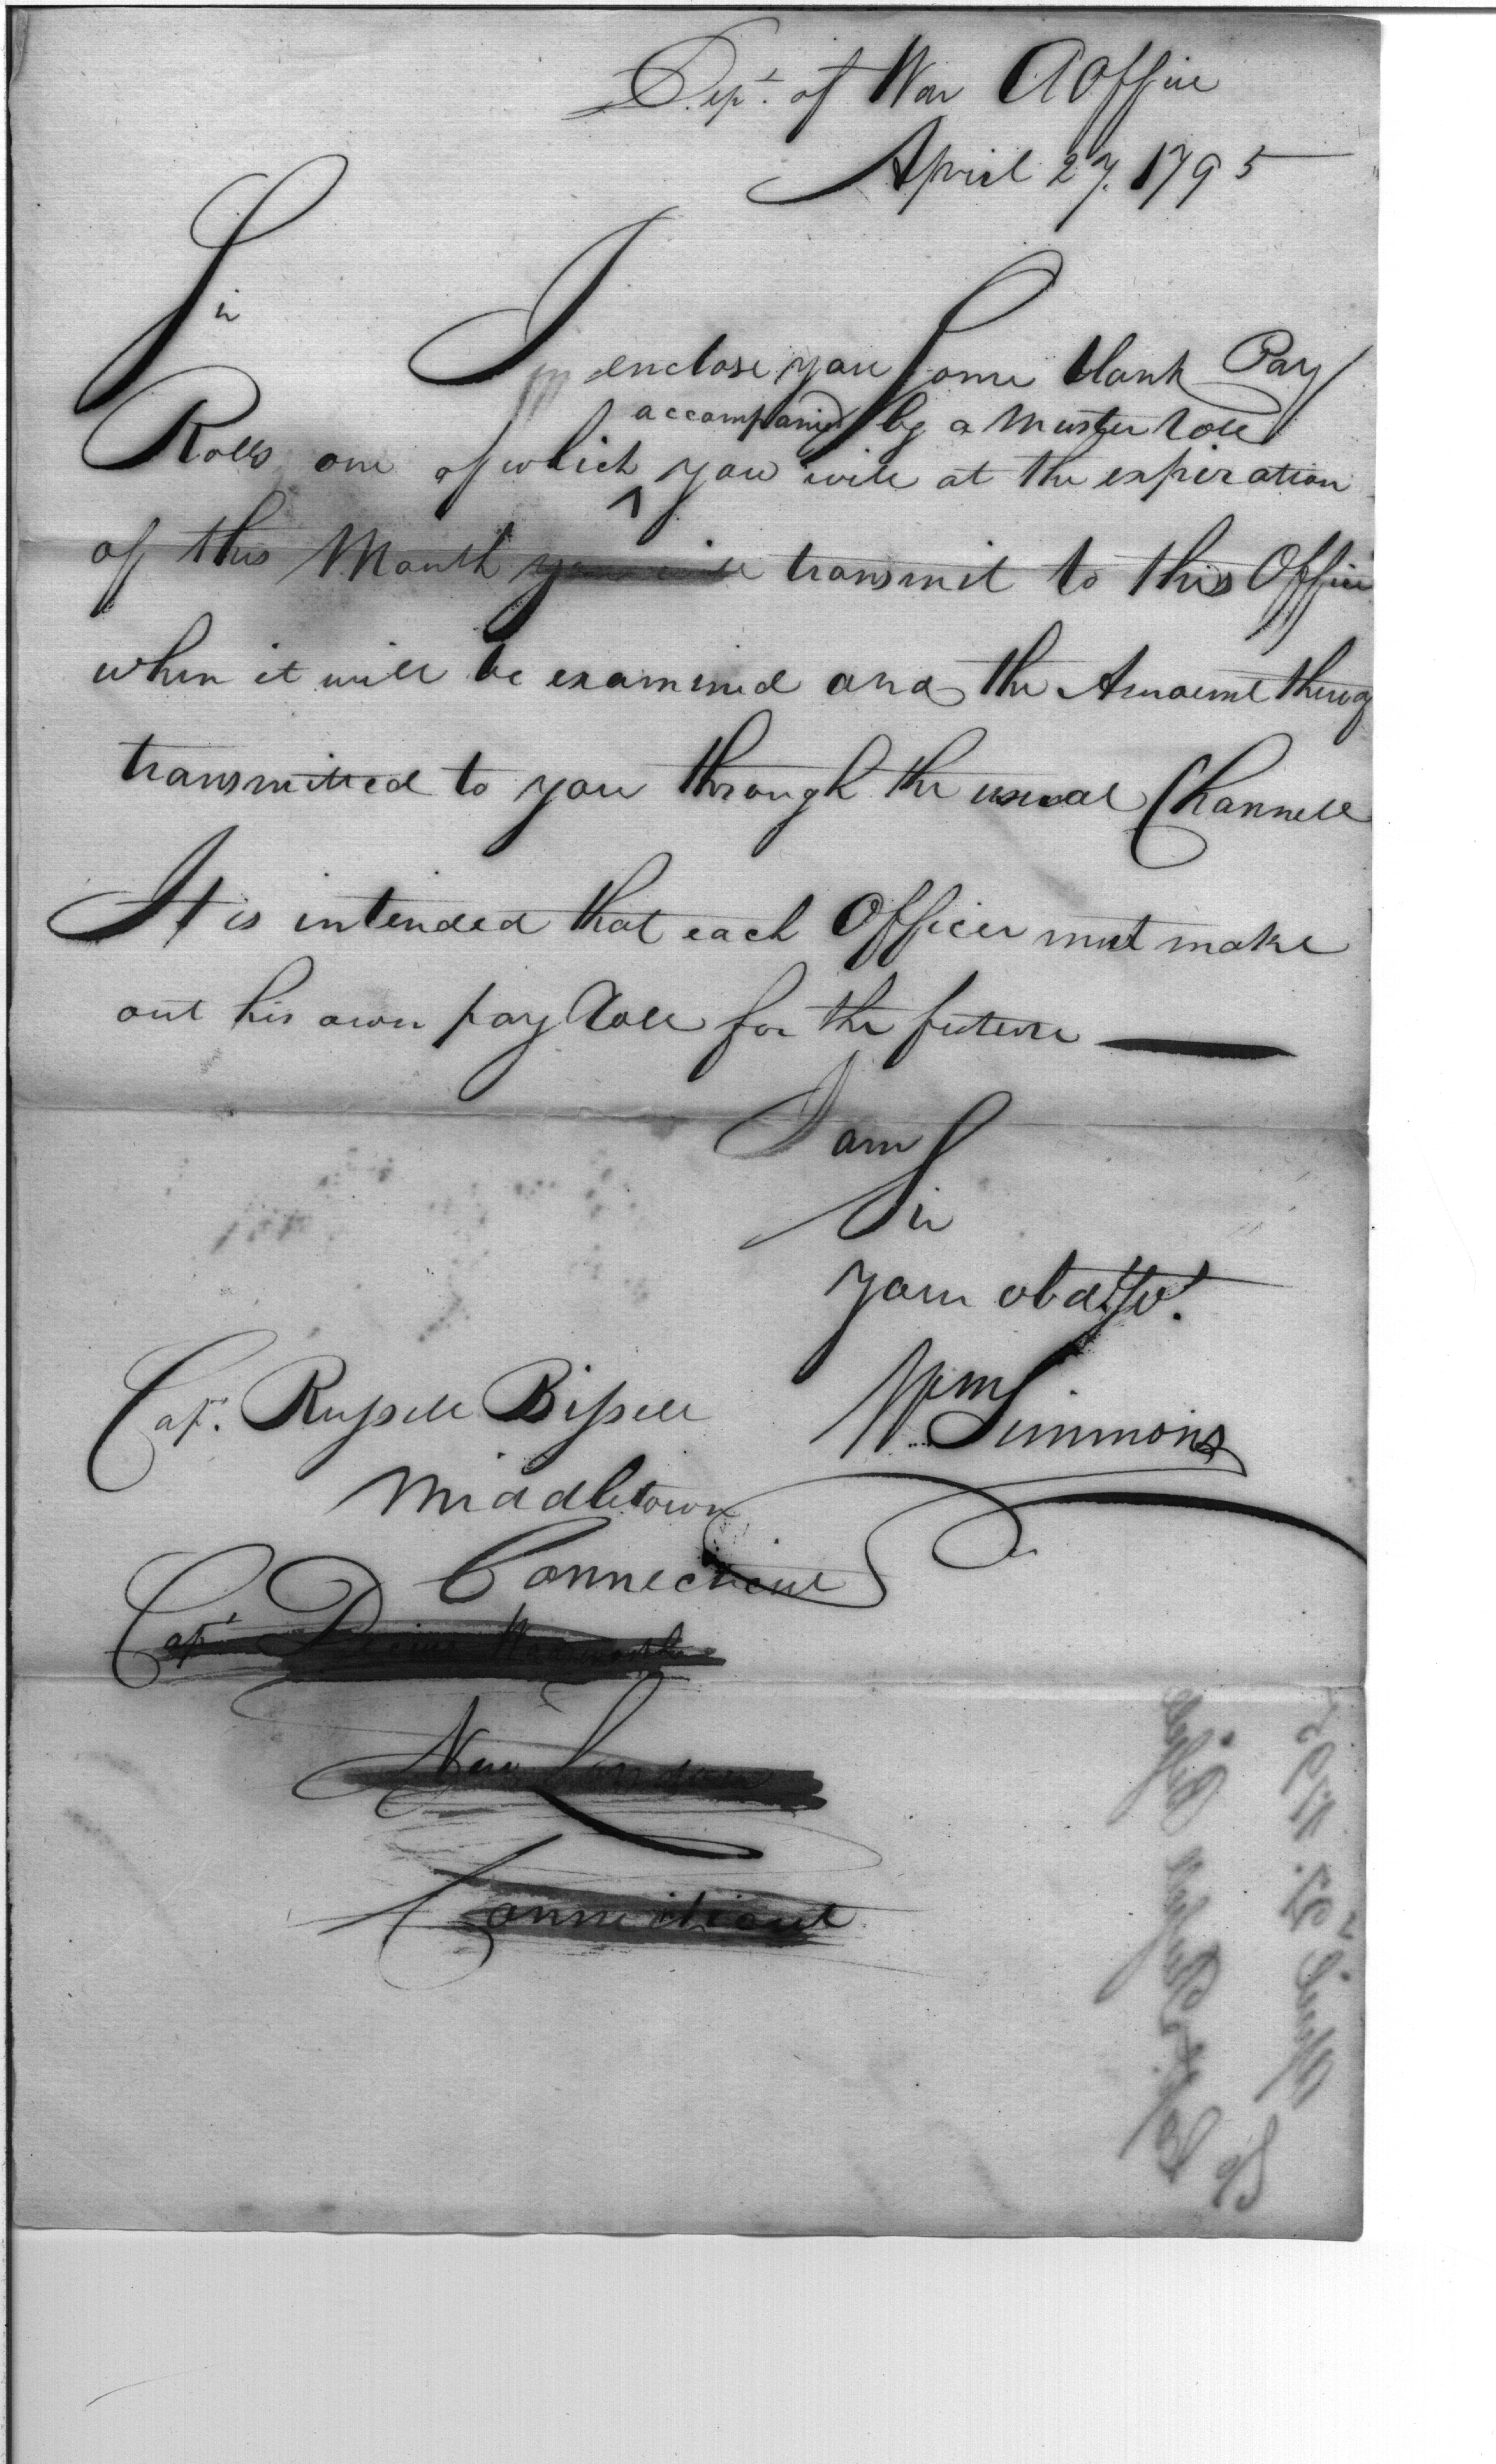 Dept. of War A Office
April 27. 1795
Sir
I enclose you Some blank Pay
accompanied by a Muster Roll
Rolls one of which ^ you will at the expiration
of this Month you will transmit to this Office
when it will be examined and the Amount thereof
transmitted to you through the usual Channell
It is intended that each Officer must make
out his own pay Roll for the future
I am
Sir
Your obdt. Svt.
Wm Simmons
Capt. Russell Bissell
Middletown
Connecticut
Capt Decius Wadsworth
New London
Connecticut